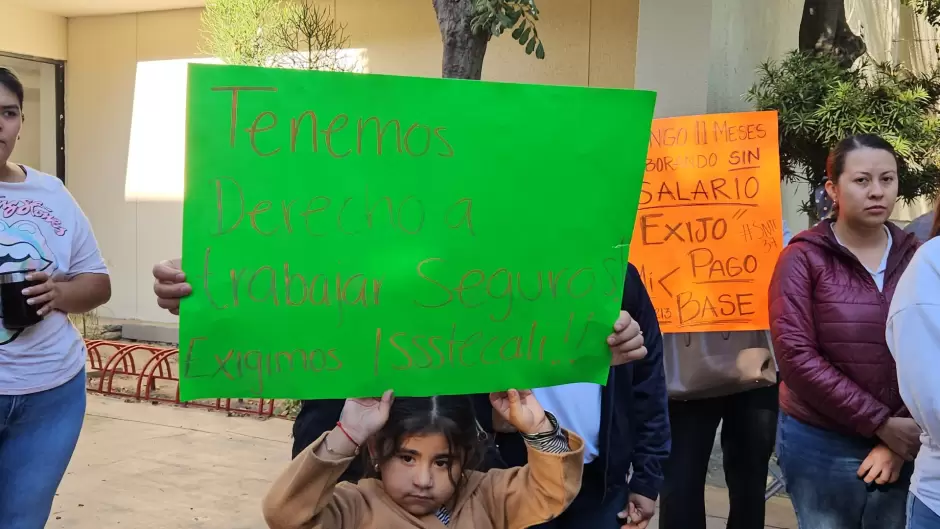 Tenemos
Derecho a
trabajar Seguros!
Exigimos Issstecali!!
NGO 11 MESES
BORANDO SIN
SALARIO
"EXIJO"
PAGO
BASE